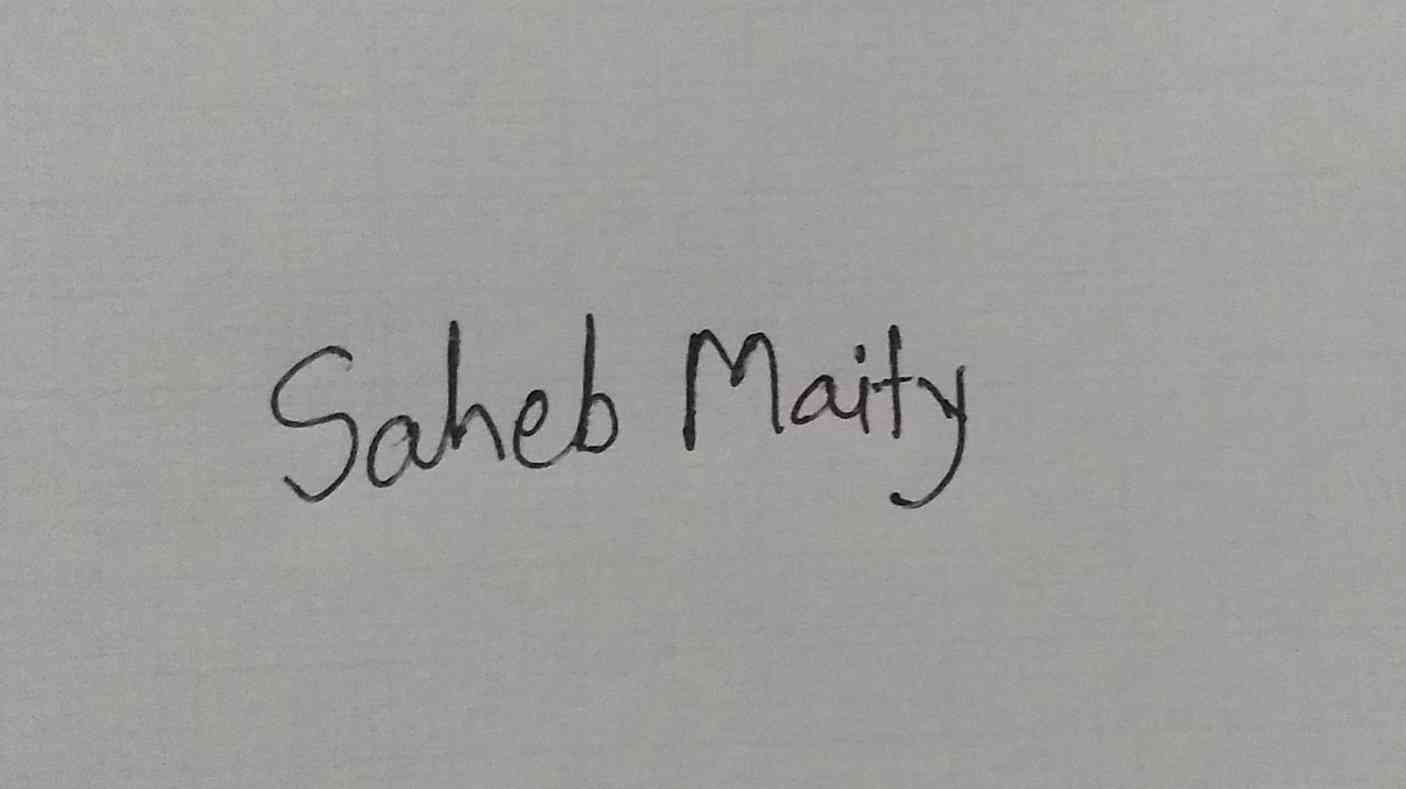 Saheb Maity